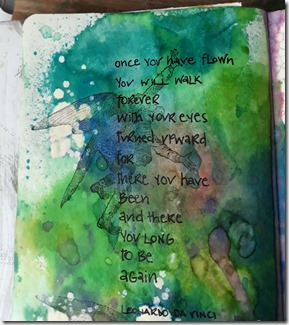 once you have flown
you will walk
forever
with your eyes
turned upward
for
there you have
been
and there
you long
to be
again
Leonardo da Vinci